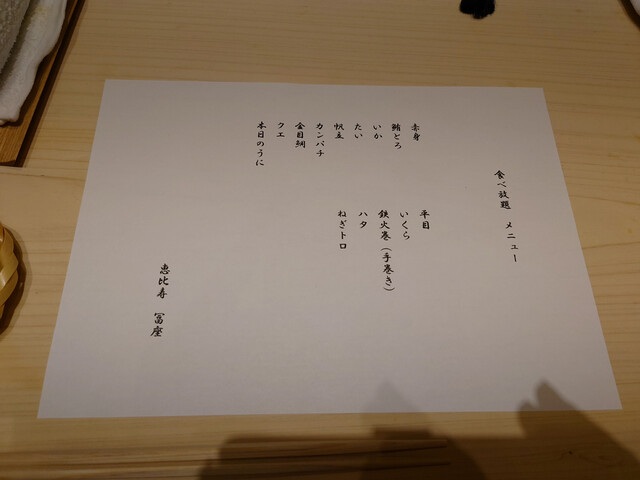 食べ放題 メニュー
赤身
鮪とろ
いか
たい
帆立
カンパチ
金目鯛
クエ
本日のうに
平目
いくら
鉄火巻(手巻き)
ハタ
ねぎトロ
恵比寿 冨座